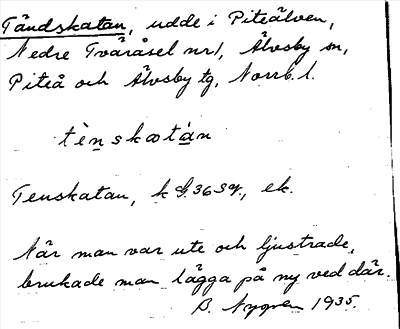 Tåndskatan, udde i Piteälven,
Nedre Tväråsel nr 1, Älvsby sn,
Piteå och Älvsby tg, Norrb. l.
tènskatàn
Tenskatan, k 36 Sv., ek.
När man var ute och ljustrade,
brukade man lägga på ny ved där.
B. Nygren 1935.